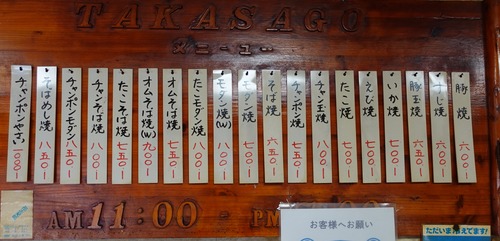 TAKASAGO
メニュー
豚焼 六〇〇
すじ焼 六〇〇
豚玉焼 六五〇
いか焼 七〇〇
えび焼 七〇〇
たこ焼 七〇〇
チャン玉焼 七〇〇
チャンポン焼 七五〇
そば焼 六五〇
モダン焼 七〇〇
モダン焼(W) 八〇〇
たこモダン焼 八〇〇
オムそば焼 七五〇
オムそば焼(W) 九〇〇
たこそば焼 七五〇
チャンそば焼 八〇〇
チャンポンモダン 八五〇
そばめし焼 八五〇
チャンポンやさい
AM 11:00 - PM
お客様へお願い
ただいま